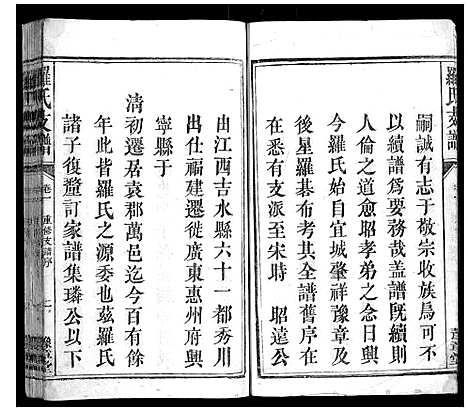 羅氏支譜
嗣誠有志于敬宗收族爲可不
以續譜爲要務哉盖譜既續則
人倫之道愈昭孝弟之心愈
今羅氏始自宜城肇祥豫章及
後星羅碁布考其全譜舊序在
在悉有支派至宋時　昭遠公
出江西吉水縣六十一都秀川
出仕福建遷徙廣東惠州府興
寧縣于
清初遷居袁郡萬邑迄今百有餘
年此皆羅氏之源委也茲羅氏
諸子復釐訂家譜集璘公以下
羅氏支譜
卷一
重修支譜序
二
豫章堂